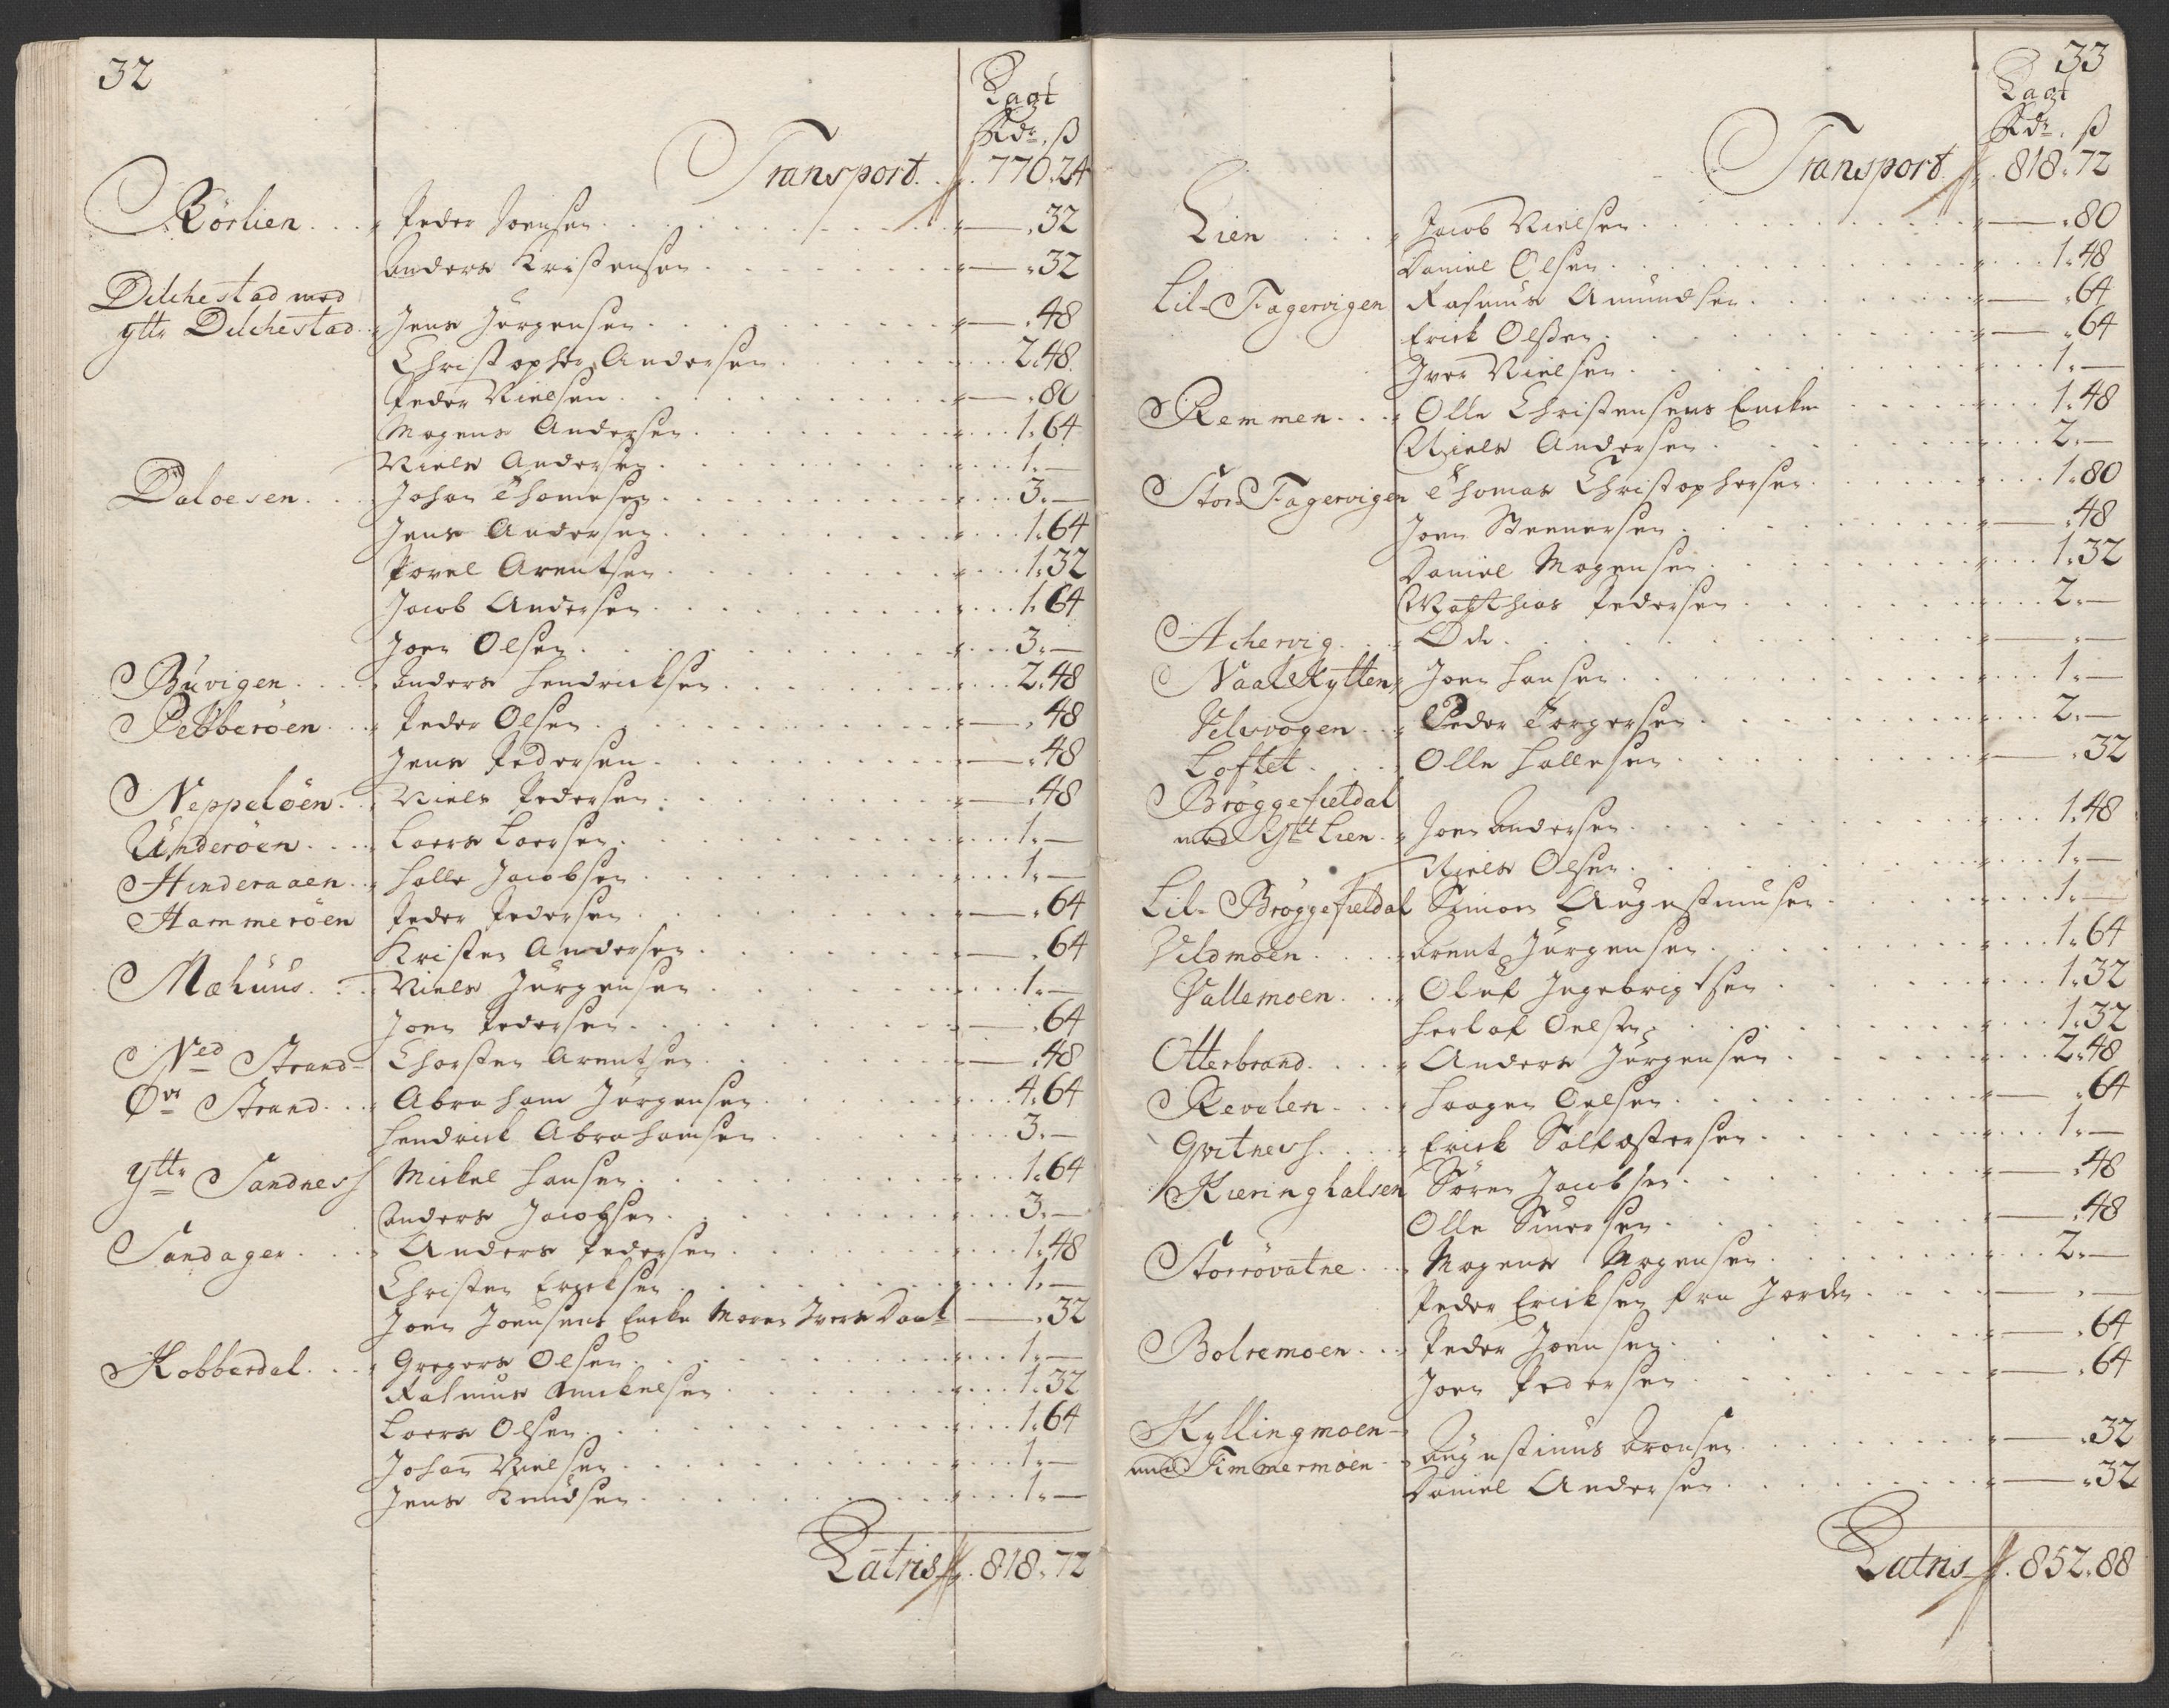 32
Lagt
Rdr. ß
Transport. 770.24
Rörlien. Peder Joensen. 32
Anders Kristensen. 32
Dilchestad med
yttr Dilchestad. Jens Jörgensen. 48
Christopher Andersen 2.48.
Peder Nielsen. 80
Mogens Andersen. 1.64
Niels Andersen. 1.—
Daloesen. Johan Thomesen. 3.—
Jens Andersen. 1.64
Povel Arentsen. 1.32
Jacob Andersen. 1.64
Joen Olsen. 3.—
Buvigen. Anders Hendricksen. 2.48
Pebberöen. Peder Olsen. 48
Jens Pedersen. 48
Neppelöen. Niels Pedersen. 48
Underöen. Laers Laersen. 1.—
Hinderaaen. Halle Jacobsen. 1.—
Hammeröen Peder Pedersen. 64
Kristen Andersen. 64
Mæhuus. Niels Jürgensen. 1.—
Joen Pedersen. 64
Ned Strand Thorsten Arentsen. 48
Øvr Strand. Abraham Jörgensen. 4.64
Hendrick Abrahamsen. 3.—
yttr Sandnes Mickel Hansen. 1.64
Anders Jacobsen. 3.—
Sandager. Anders Pedersen. 1.48
Christen Ericksen. 1.—
Joen Joensens Encke Maren Ivers Daat. 32
Kobberdal. Gregers Olsen. 1.—
Rasmus Mickelsen. 1.32
Laers Olsen. 1.64
Johan Nielsen. 1.—
Jens Knudsen. 1.—
Latris 818.72
33
Lagt
Rdr. ß
Transport 818.72
Lien Jacob Nielsen. 80
Daniel Olsen. 1.48
Lil-Fagervigen Rasmus Amundsen. 64
Erick Olsen. 64
Iver Nielsen. 1.—
Remmen. Olle Christensens Encke 1.48
Niels Andersen. 2.—
Stor Fagervigen Thomas Christophersen. 1.80
Joen Steenersen. 48
Daniel Mogensen. 1.32
Matthias Pedersen. 2.—
Achervig. Öde. —
Naalskytten Joen Hansen. 1.—
Velvvogen. Peder Torgersen 2.—
Loftet. Olle Hallesen 32
Bröggefieldal
med Ytt Lien. Joen Andersen. 1.48
Niels Olsen. 1.—
Lil-Bröggefieldal Simon Augustinusen. 1.—
Vildmoen. Arent Jürgensen. 1.64
Vallemoen. Oluf Ingebrigtsen 1.32
Herlof Oelsen. 1.32
Otterbrand. Anders Jürgensen 2.48
Revelen. Haagen Oelsen. 64
Qvitnes. Erick Solfæstersen. 1.—
Kieringhalsen Sören Jacobsen. 48
Olle Siversen. 48
Storrövatne. Mogens Mogensen. 2.—
Peder Ericksen fra Jorden. —
Bolremoen. Peder Joensen. 64
Joen Pedersen 64
Kyllingmoen
med Timmermoen. Augustinus Aronsen. 32
Daniel Andersen. 32
Latris 852.88